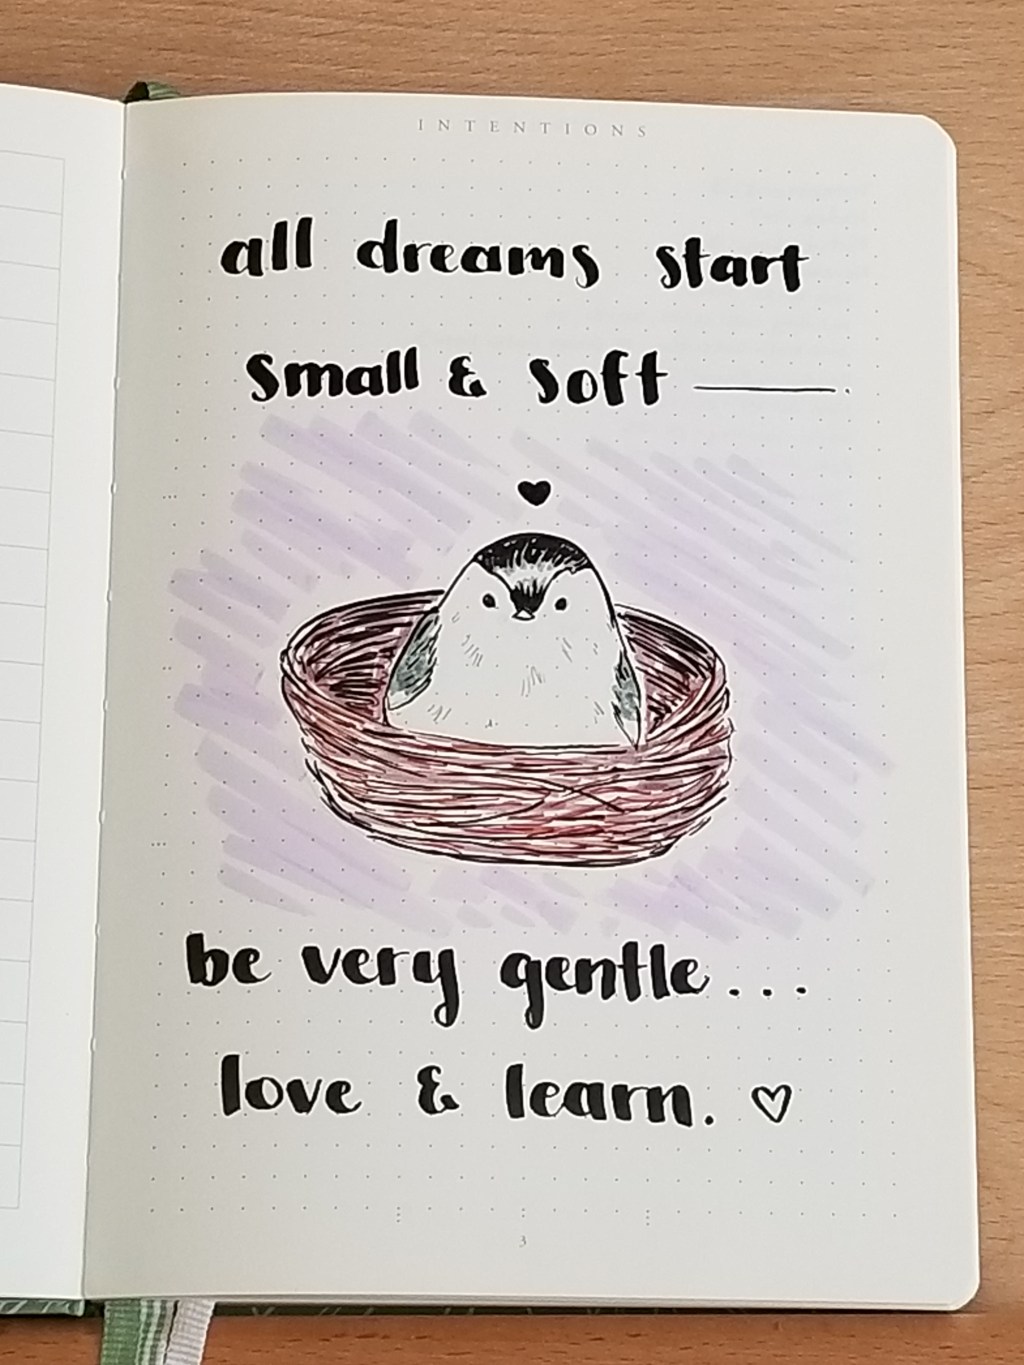 INTENTIONS
all dreams start
small & soft ——.
be very gentle...
love & learn. ♡
3